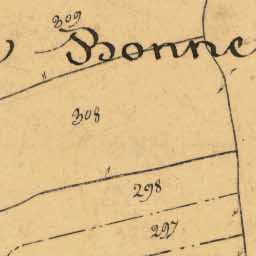 309
Bonne
308
298
297